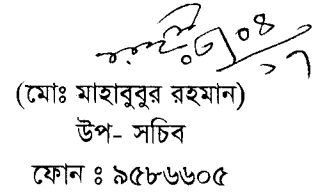 (মোঃ মাহাবুবুর রহমান)
উপ- সচিব
ফোন ঃ ৯৫৮৬৬০৫